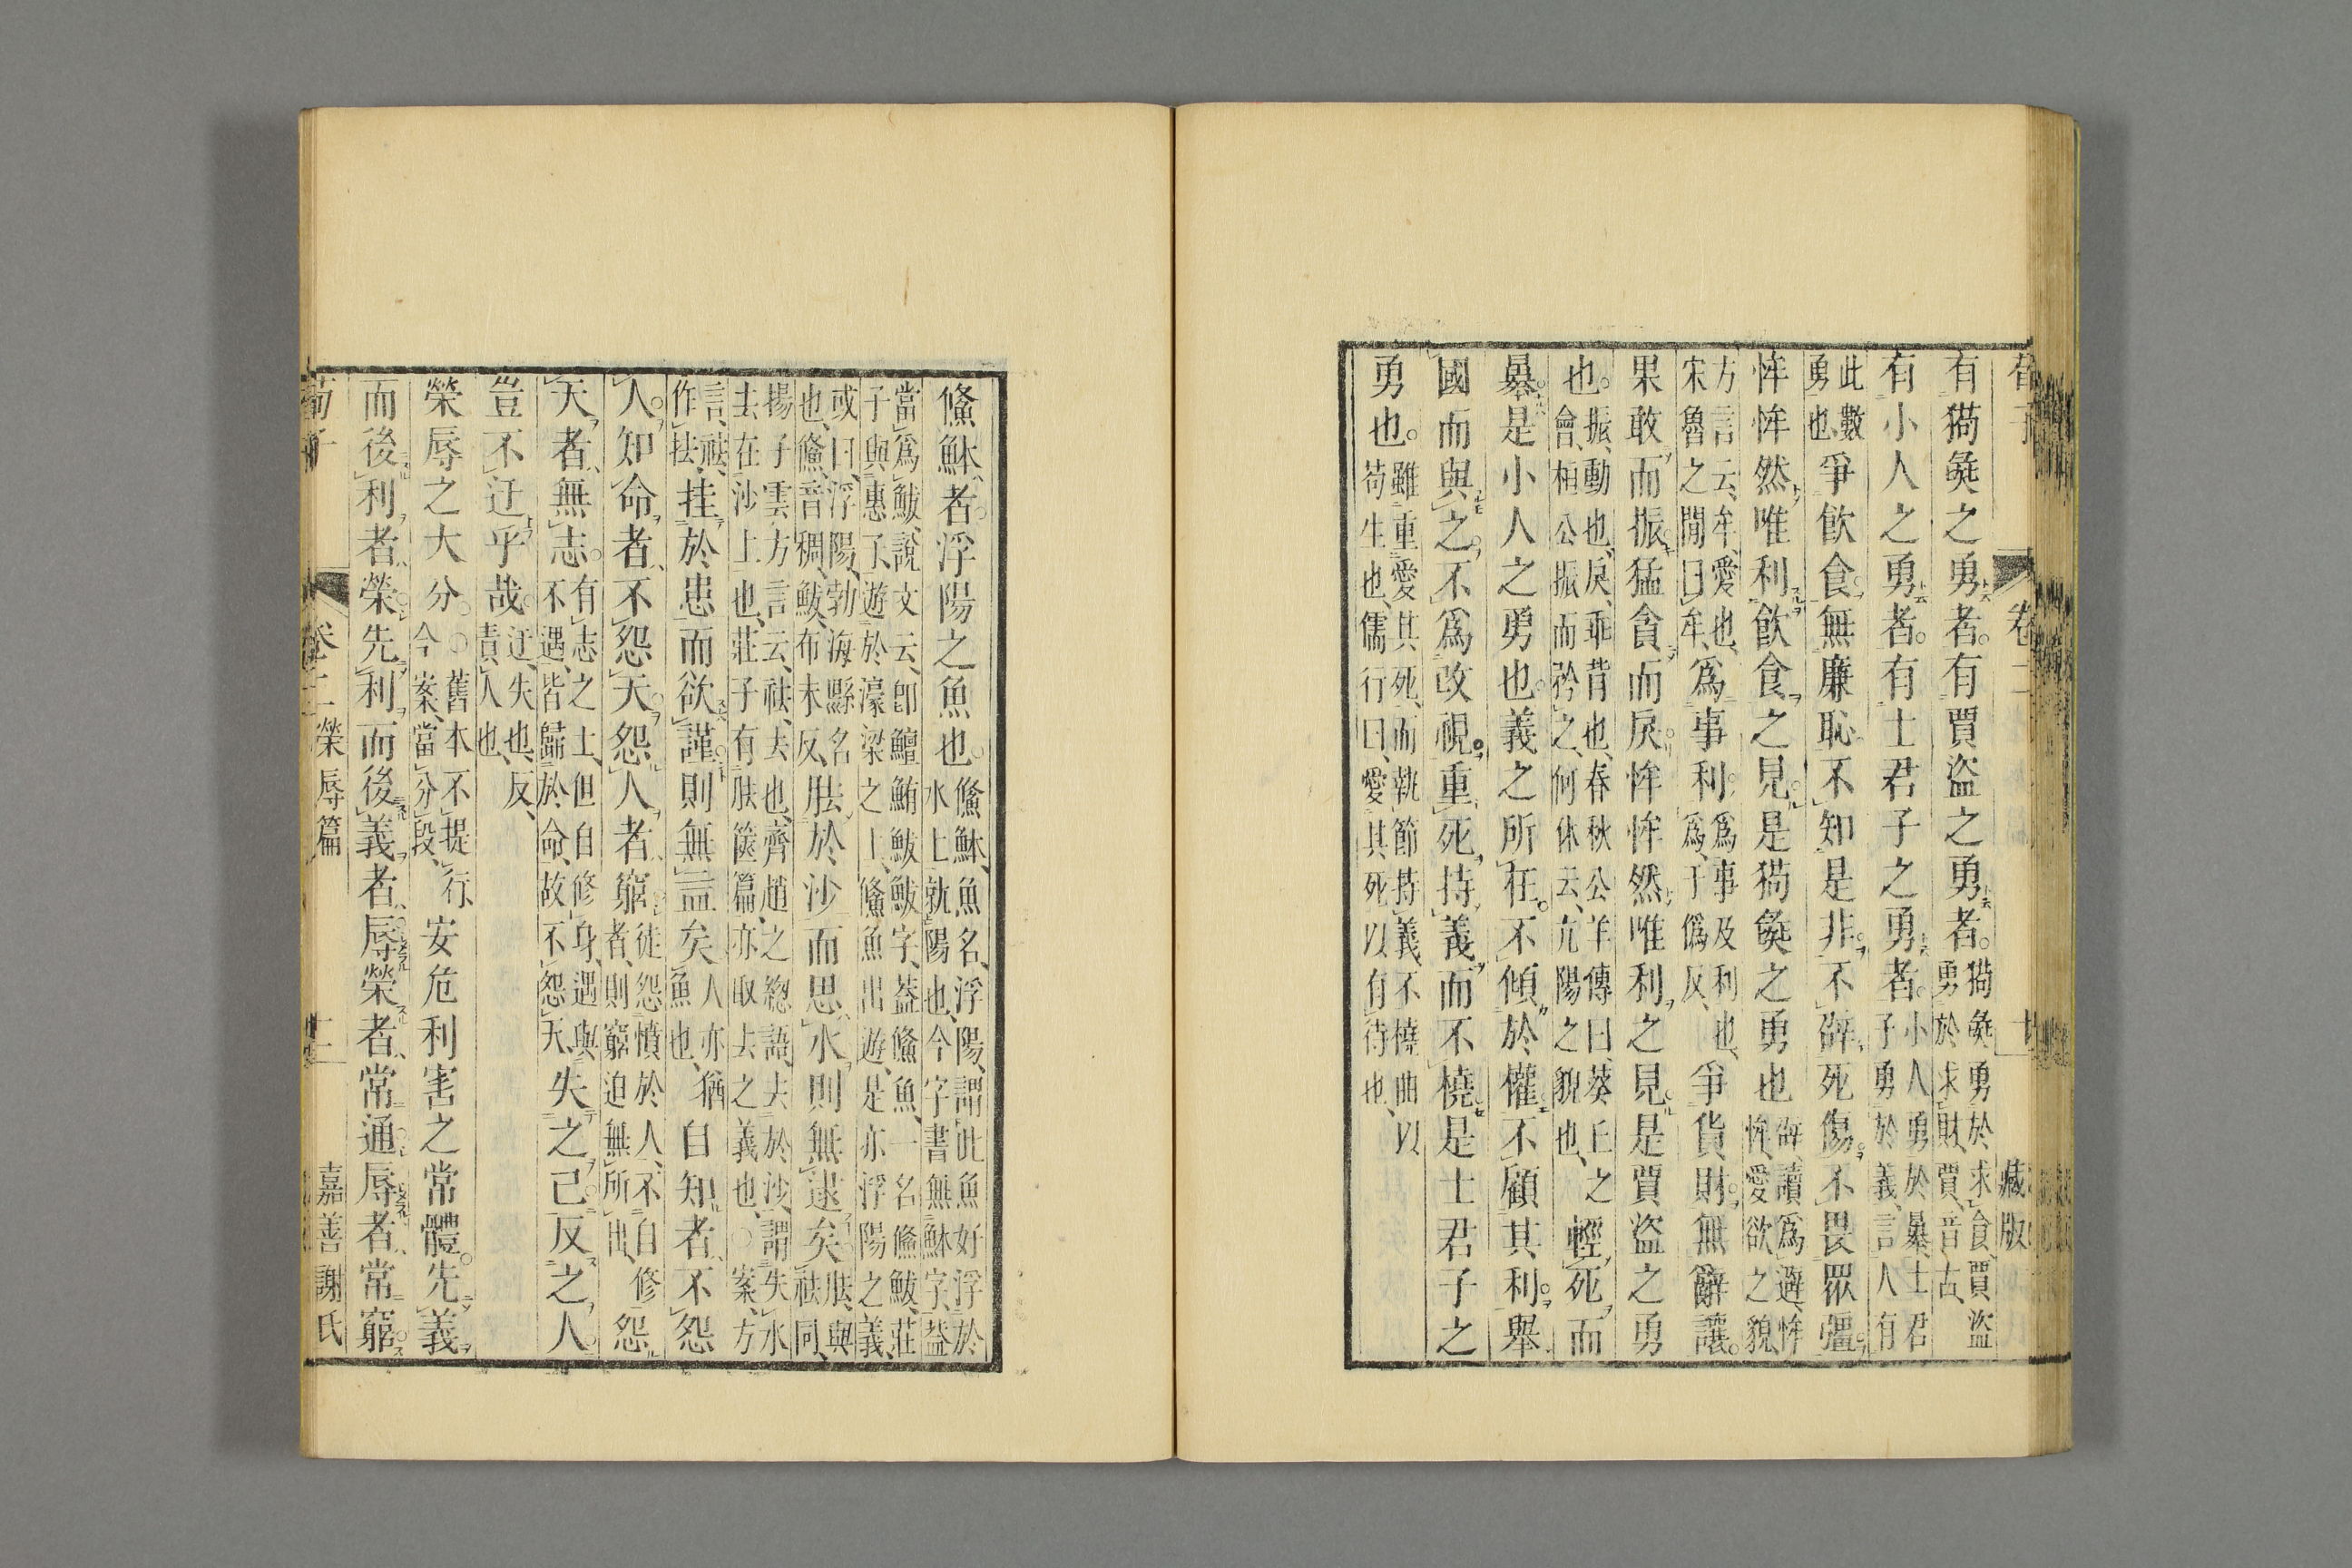 荀子 卷二 藏版
有狗彘之勇者。有賈盜之勇者。狗彘勇於求食、賈盜勇於求財、賈、音古、
有小人之勇者。有士君子之勇者。小人勇於暴、士君子勇於義、言人有
此數勇也、爭飮食。無廉恥不知是非。不辟死傷。不畏眾彊。
恈恈然唯利飮食之見。是狗彘之勇也辟、讀爲避、恈恈、愛欲之貌、
方言云、牟、愛也、宋魯之閒曰牟、爲事利。爲事及利也、爲、于僞反、爭貨財。無辭讓。
果敢而振猛貪而戾。恈恈然唯利之見。是賈盜之勇
也。振、動也、戾、乖背也、春秋公羊傳曰、葵丘之會、桓公振而矜之、何休云、亢陽之貌也、輕死而
暴。是小人之勇也。義之所在。不傾於權。不顧其利。舉
國而與之。不爲改視。重死持義而不橈。是士君子之
勇也。雖重愛其死、而執節持義、不橈曲以苟生也、儒行曰、愛其死以有待也、
鯈䱁者。浮陽之魚也。鯈䱁、魚名、浮陽、謂此魚好浮於水上就陽也、今字書無䱁字、蓋
當爲鮁、說文云、卽鱣鮪鮁鮁字、蓋鯈魚、一名鯈鮁、莊子與惠子遊於濠梁之上、鯈魚出遊、是亦浮陽之義、
或曰、浮陽、勃海縣名也、鯈、音稠、鮁、布末反、胠於沙而思水則無逮矣胠、與祛同、
揚子雲方言云、祛、去也、齊趙之緫語、去於沙、謂失水去在沙上也、莊子有胠篋篇、亦取去之義也、〇案、方
言、祛、作抾、挂於患而欲謹則無益矣人亦猶魚也、自知者、不怨
人。知命者、不怨天。怨人者、窮徒怨憤於人、不自修者、則窮迫無所出、怨
天者、無志。有志之士、但自修身、遇與不遇、皆歸於命、故不怨天、失之己。反之人
豈不迂乎哉。迂、失也、反責人也、
榮辱之大分。〇舊本不提行、今案、當分段、安危利害之常體。先義
而後利者榮。先利而後義者、辱。榮者、常通。辱者、常窮
荀子 卷二 榮辱篇 十二 嘉善謝氏